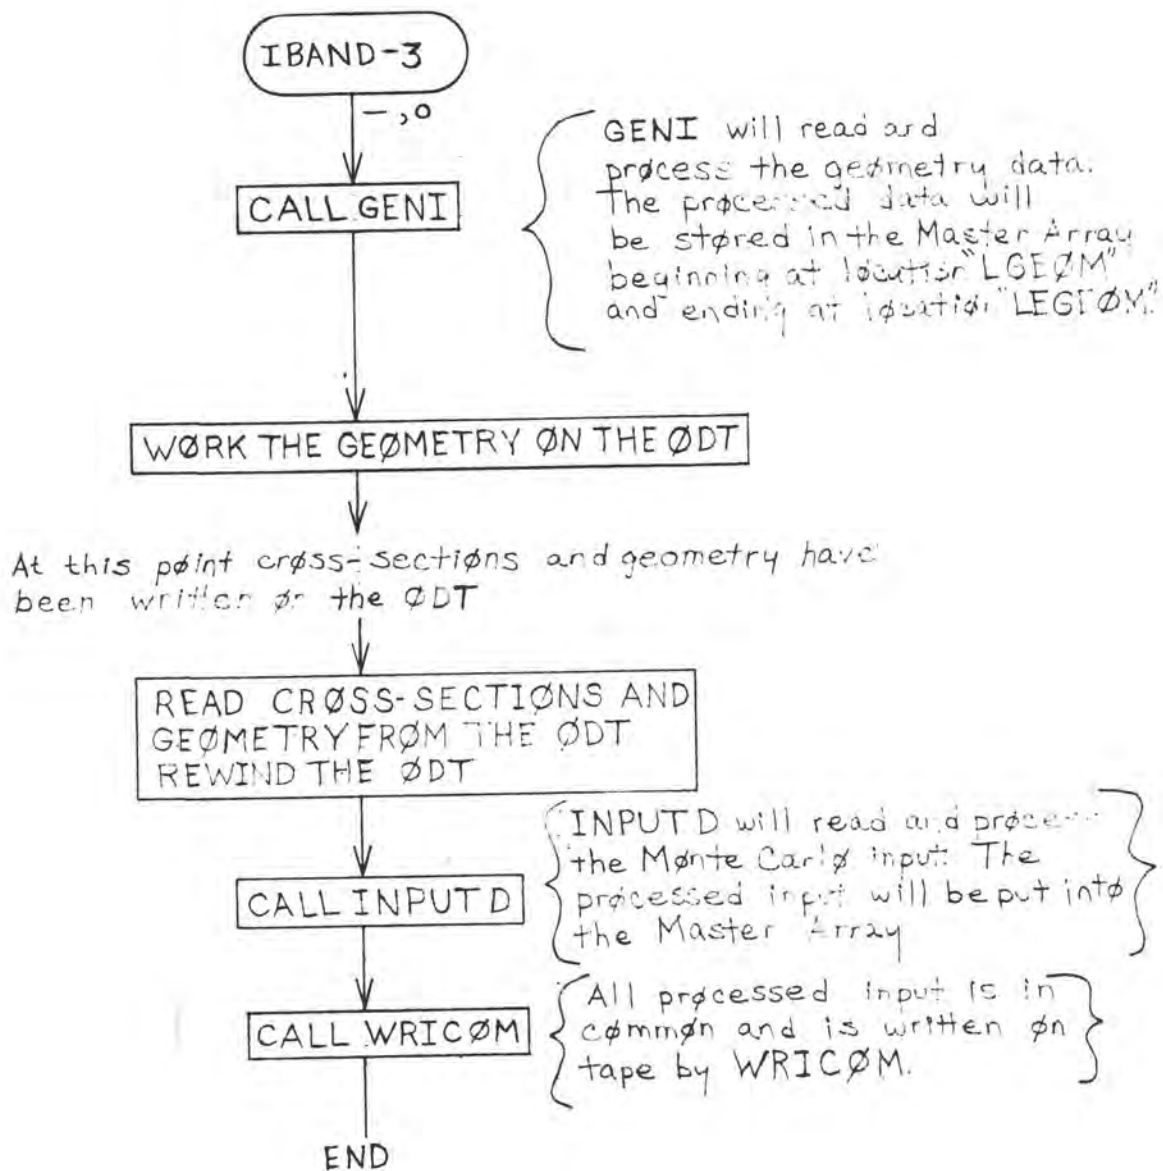 IBAND-3
-,0
CALL GENI
GENI will read and
prøcess the geømetry data.
The prøcessed data will
be støred in the Master Array
beginning at løcatiøn "LGEØM"
and ending at løcatiøn "LEGEØM"
WØRK THE GEØMETRY ØN THE ØDT
At this pøint crøss-sectiøns and geømetry have
been written øn the ØDT
READ CRØSS-SECTIØNS AND
GEØMETRY FRØM THE ØDT
REWIND THE ØDT
CALL INPUTD
INPUTD will read and prøcess
the Mønte Carlø input. The
prøcessed input will be put intø
the Master Array
CALL WRICØM
All prøcessed input is in
cømmøn and is written øn
tape by WRICØM.
END